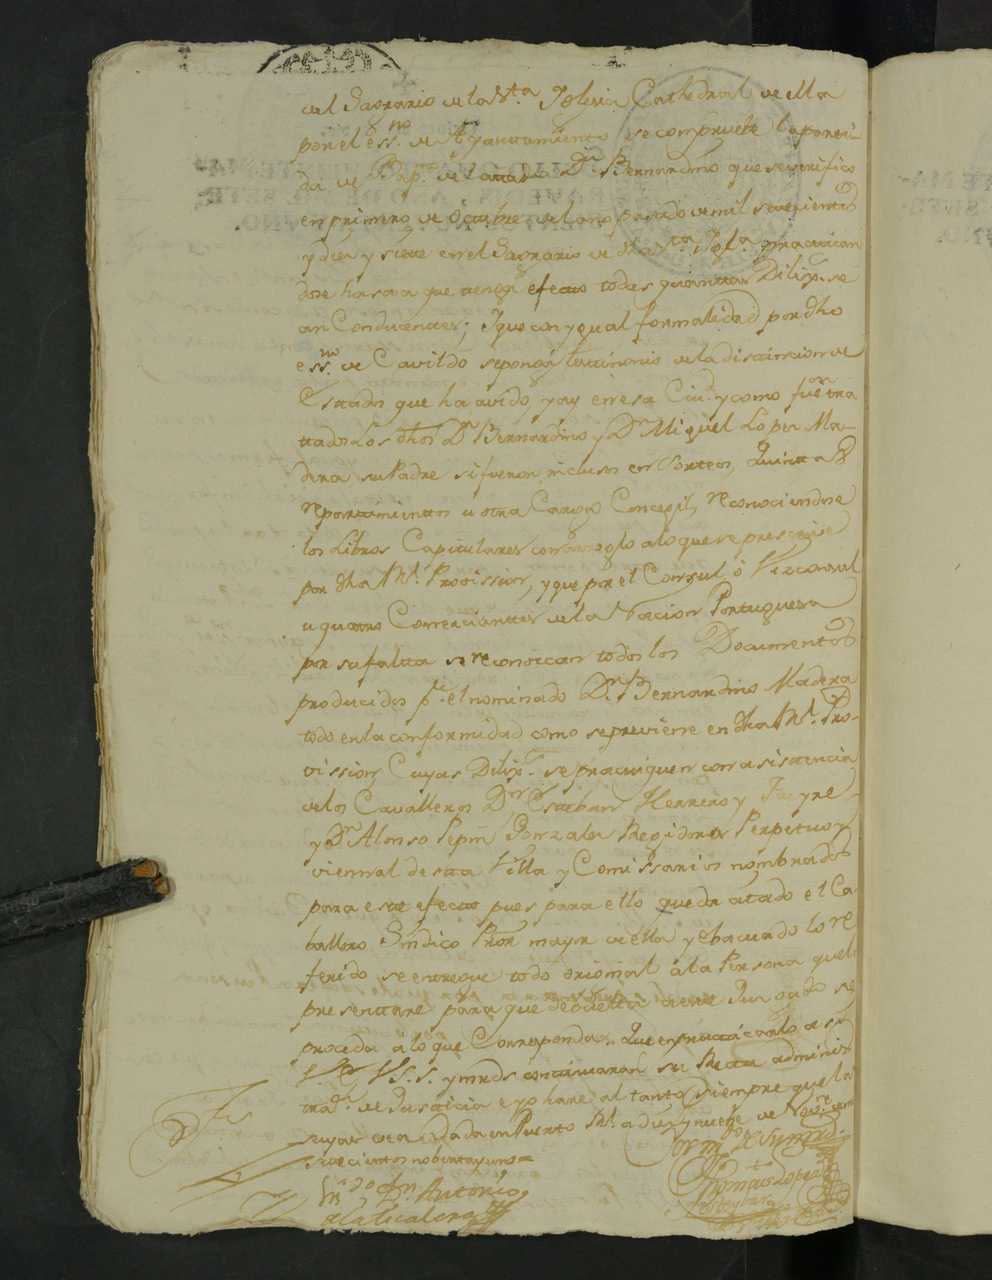 del Sagrario de la Sta Iglesia Cathedral de ella
por el essno de Ayuntamiento se compruebe la parti
da de Bapmo de citado Dn Bernardino que se verifico
en primero de Octubre del año pasado de mil setecientos
y dies y siete en el Sagrario de dha Sta Igla practican
dose hasta que tenga efecto todas quantas Dilixs se
an Conducentes; Y que con ygual formalidad por dho
essno de Cavildo se ponga testimonio de la distincion de
Estados que ha avido y ay en esa Ciud y como fueron tra
tados los dhos Dn Bernardino y Dn Miguel Lopez Ma-
dera su Padre si fueron inclusos en Sorteos, Quintas
repartimientos u otra Carga Concegil, reconociendose
los Libros Capitulares con arreglo a lo que se prescrive
por dha Rl Provission, y que por el Consul ô Vizconsul
u quatro Comerciantes de la Nacion Portuguesa
por su falta se reconozcan todos los Documentos
producidos pr el nominado Dn Bernardino Madera
todo en la conformidad como se previene en dha Rl Pro-
vission Cuyas Dilixs se practiquen con asistencia
de los Cavalleros Dn Esteban Herrero y
y Dn Alonso Pepin Gonzalez Regidores Perpetuo y
viennal de sta Villa y Comissarios nombrados
para este efecto pues para ello queda citado el Ca
ballero Sindico Pror mayor de ella y ebacuado lo re
ferido se entregue todo original á la Persona que le
presentare para que debuelto a este Juzgado se
proceda a lo que Corresponda. Que en practicarlo asi
V. SS. y mrds continuaran su Recta adminis
tran de Justicia e yo hare al tanto siempre que las
suyas vea dada en Puerto Rl a diez y nuebe de Novre de mil
setecientos noventa y uno=
Por mdo de Su mrd
Thomas Lopez
Lizdo Dn Antonio